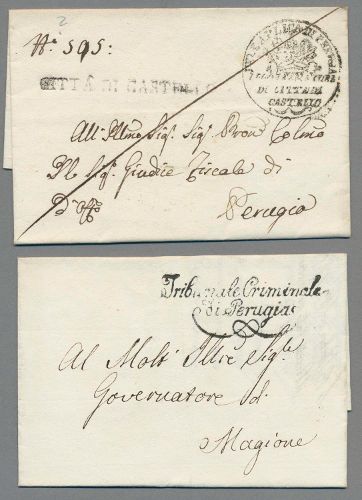 2
N.º 595:
CITTÀ DI CASTELLO
DI CITTÀ DI
CASTELLO
All' Illmo Sig.e Sig.e Pron Colmo
Il Sig.e Giudice Fiscale di
D'Off.o Perugia
Tribunale Criminale
di Perugia
Al Molt' Illre Sig.re
Governatore di
Magione